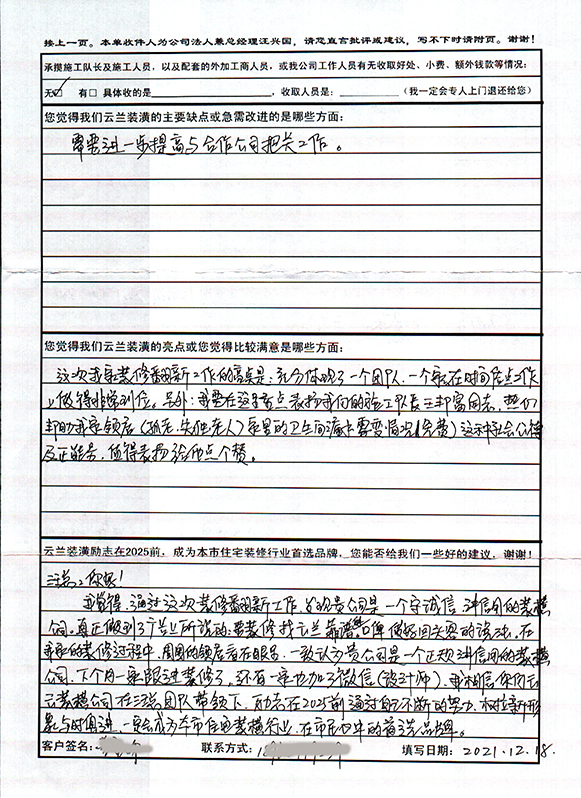 接上一页。本单收件人为公司法人兼总经理汪兴国，请您直言批评或建议，写不下时请附页。谢谢！
承揽施工队长及施工人员，以及配套的外加工商人员，或我公司工作人员有无收取好处、小费、额外钱款等情况：
无☑ 有□ 具体收的是 ，收取人员是： （我一定会专人上门退还给您）
您觉得我们云兰装潢的主要缺点或急需改进的是哪些方面：
需要进一步提高与合作公司把关工作。
您觉得我们云兰装潢的亮点或您觉得比较满意是哪些方面：
这次我家装修翻新工作的亮点是：充分体现了一个团队，一个家在时间节点工作
上做得非常到位。另外：我要在这重点表扬我们的施工队长王邦富同志，热心
帮助我家邻居（孤老、失独老人）家里的卫生间漏水 情况（免费）这种社会公德
及正能量，值得表扬给于点个赞。
云兰装潢励志在2025前，成为本市住宅装修行业首选品牌，您能否给我们一些好的建议，谢谢！
汪总，你好！
我觉得，通过这次装修翻新工作，发现贵公司是一个守诚信，讲信用的装潢
公司。真正做到了 所说的要装修找云兰靠谱， 做好回头客的说法。在
我家的装修过程中，周围的邻居看在眼里，一致认为贵公司是一个正规讲信用的装潢
公司，下个月一家跟进装修了，还有一家也加了微信（设计师），我相信你们云
兰装潢公司在汪总团队带领下，励志在2025前通过你们不断的努力，树立新形
象与时俱进，一定会成为本市住宅装潢行业，在市民心中的首选品牌。
客户签名： 联系方式： 填写日期：2021.12.18.